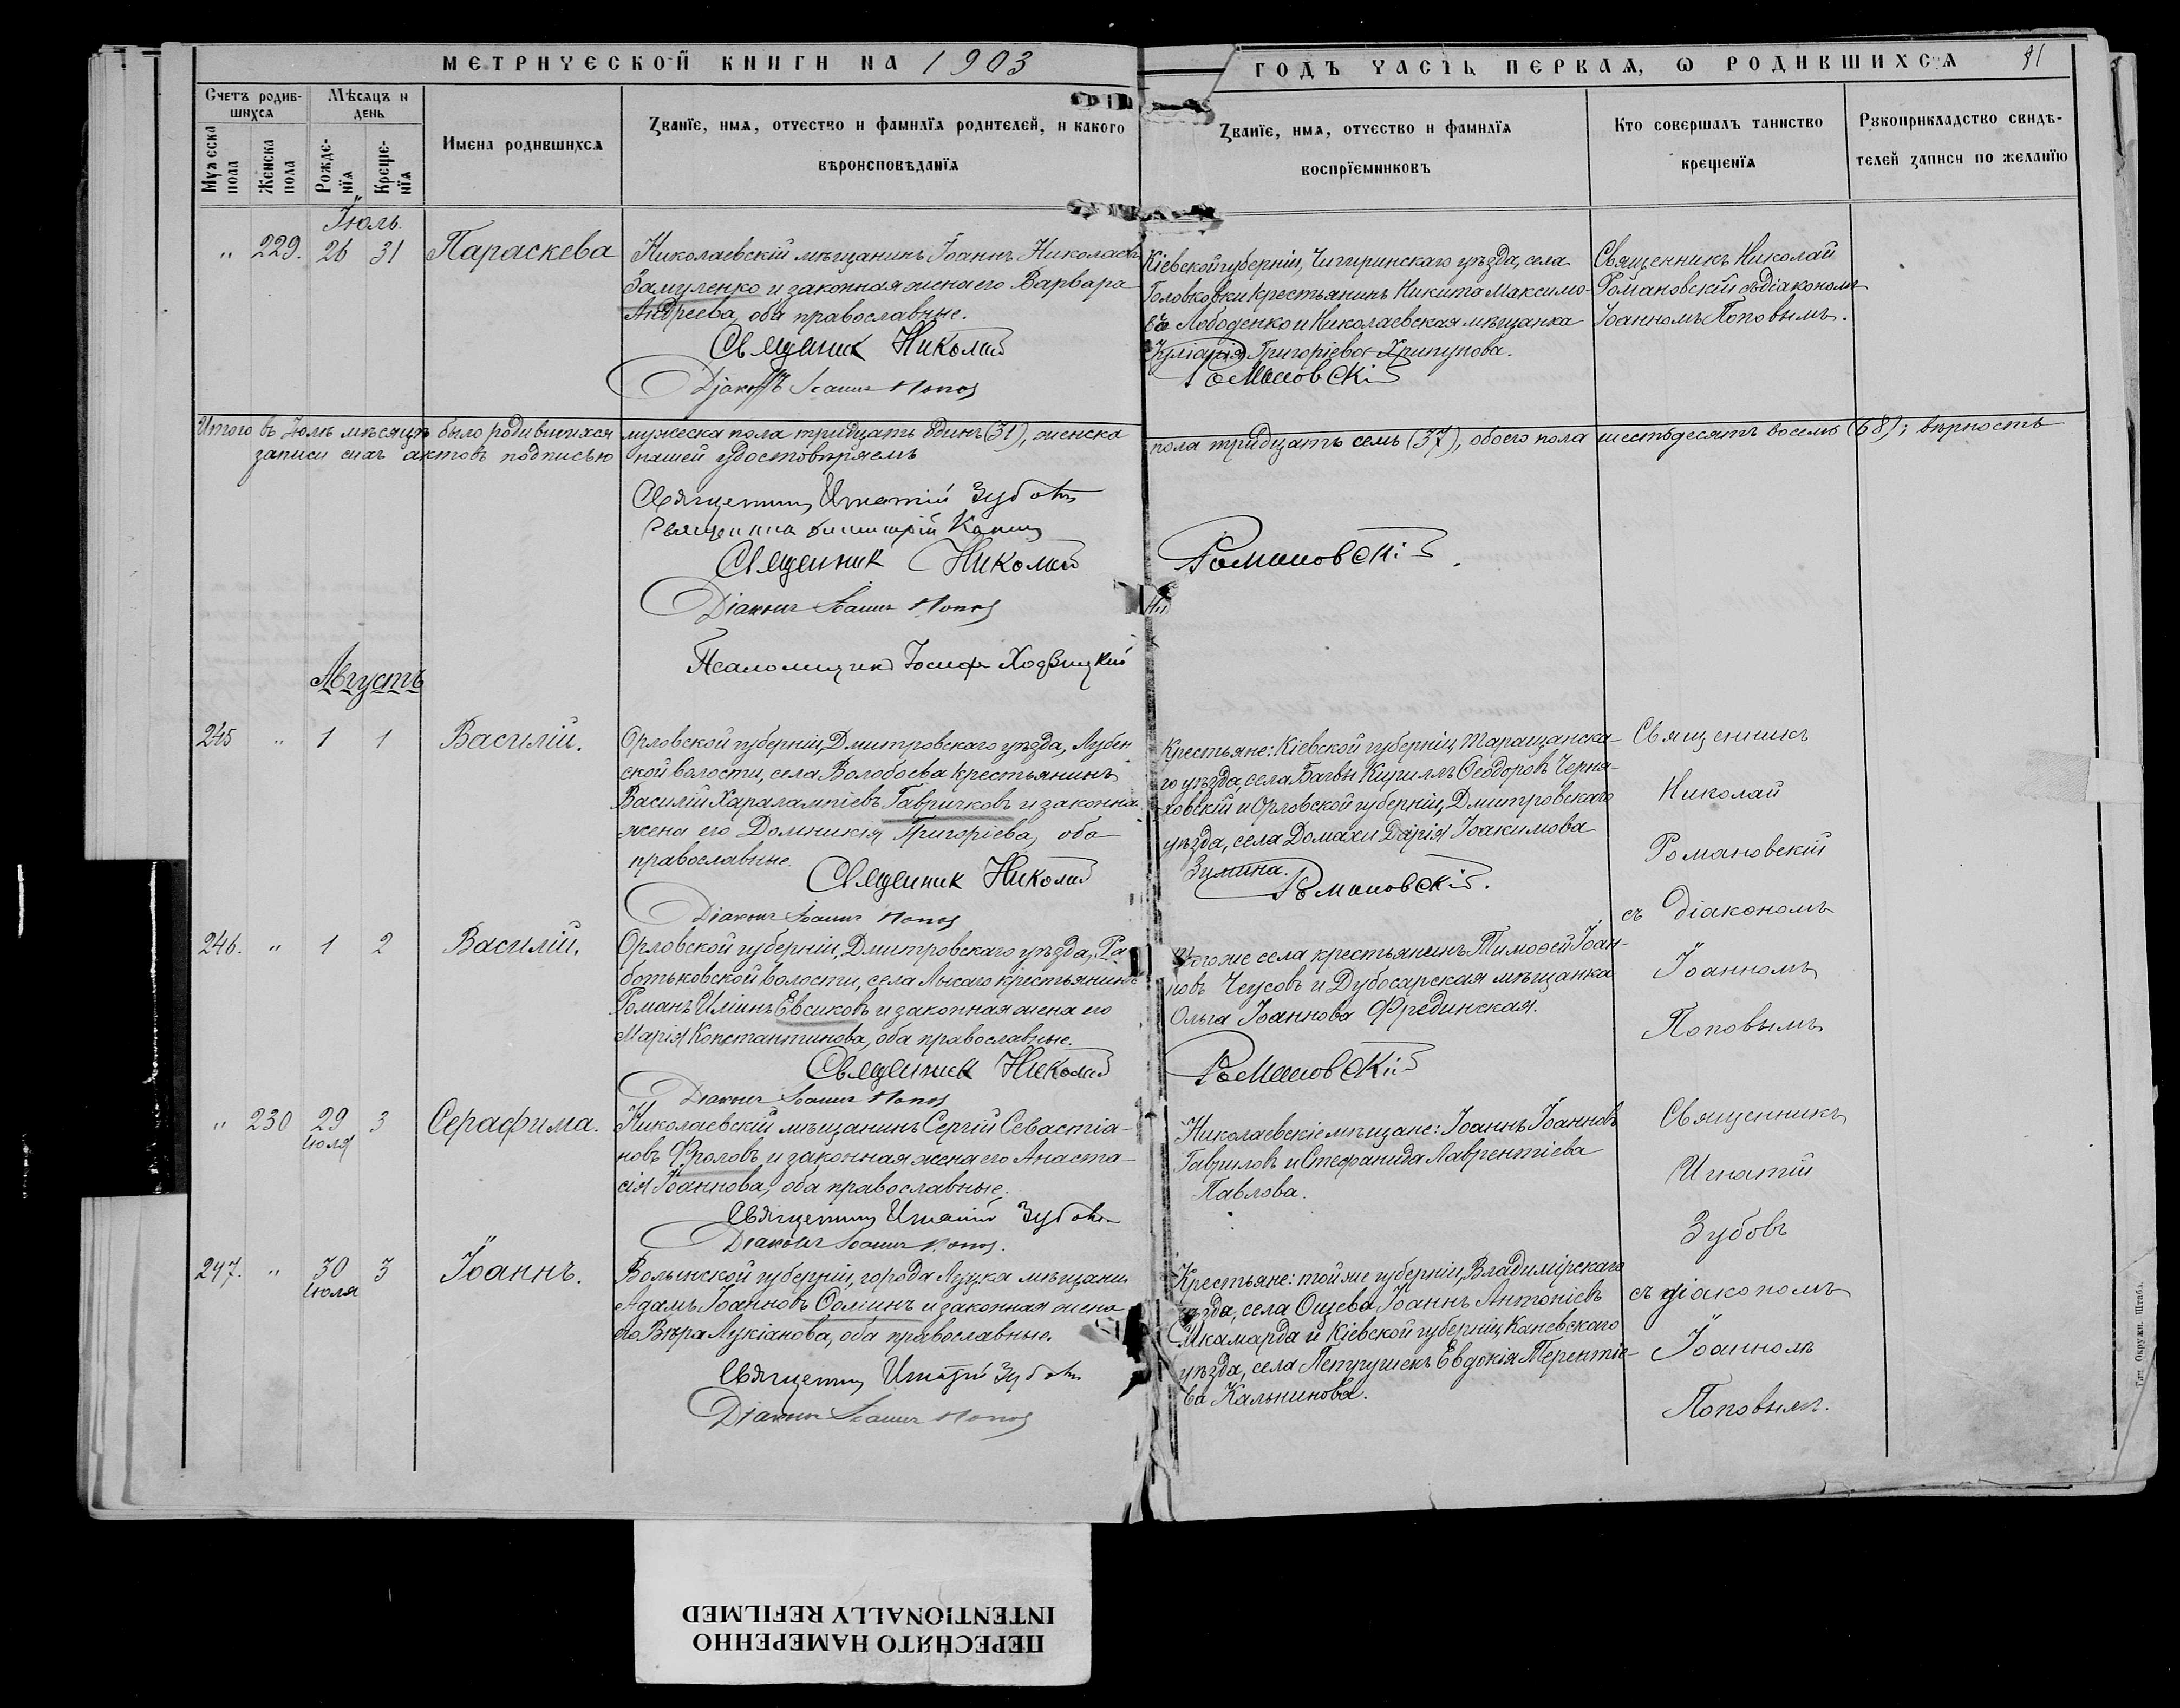 МЕТРИЧЕСКОЙ КНИГИ НА 1903
ГОДЪ ЧАСТЬ ПЕРВАЯ, Ѡ РОДИВШИХСЯ 91
Счетъ родив-
шихся
Мужеска пола
Женска пола
Мѣсяцъ и
день
Рожде-
нїя
Креще-
нїя
Имена родившихся
Званїе, имя, отчество и фамилїя родителей, и какого
вѣроисповѣданїя
Званїе, имя, отчество и фамилїя
воспрїемниковъ
Кто совершалъ таинство
крещенїя
Рукоприкладство свидѣ-
телей записи по желанїю
Іюль.
" 229. 26 31 Параскева
Николаевскій мѣщанинъ Іоаннъ Николаевъ
Замуленко и законная жена его Варвара
Андреева, оба православные.
Священник Николай
Діаконъ Іоаннъ Попов
Кіевской губерніи, Чигиринскаго уѣзда, села
Головковки крестьянинъ Никита Максимо-
въ Лободенко и Николаевская мѣщанка
Іуліанія Григоріева Хрипунова.
Романовскій
Священникъ Николай
Романовскій съ діакономъ
Іоанномъ Поповымъ.
Итого въ Іюлѣ мѣсяцѣ было родившихся мужеска пола тридцать одинъ (31), женска пола тридцать семь (37), обоего пола шестьдесятъ восемь (68); вѣрность
записи сихъ актовъ подписью нашей удостовѣряемъ
Священникъ Игнатій Зубовъ
Священникъ Димитрій
Священник Николай Романовскій.
Діаконъ Іоаннъ Попов
Псаломщикъ Іосифъ Ходзицкій
Августъ
245 " 1 1 Василій.
Орловской губерніи, Дмитровскаго уѣзда, Лубен
ской волости, села Волобоева крестьянинъ
Василій Харалампіевъ Гавричковъ и законна
жена его Домникія Григоріева, оба
православные.
Священник Николай
Діаконъ Іоаннъ Попов
Крестьяне: Кіевской губерніи, Таращанска-
го уѣзда, села Багвы Кириллъ Ѳеодоровъ Черня-
ховскій и Орловской губерніи, Дмитровскаго
уѣзда, села Домахи Дарія Іоакимова
Зимина.
Романовскій.
Священникъ
Николай
Романовскій
съ діакономъ
Іоанномъ
Поповымъ
246. " 1 2 Василій.
Орловской губерніи, Дмитровскаго уѣзда, Ра
ботьковской волости, села Лысаго крестьянинъ
Романъ Иліинъ Евсиковъ и законная жена его
Марія Константинова, оба православные.
Священник Николай
Діаконъ Іоаннъ Попов
Того же села крестьянинъ Тимоѳей Іоан-
новъ Чеусовъ и Дубосарская мѣщанка
Ольга Іоаннова Фрединская.
Романовскій
" 230 29 3 Серафима.
Іюля
Николаевскій мѣщанинъ Сергій Севастіа-
новъ Фроловъ и законная жена его Анаста-
сія Іоаннова, оба православные.
Священникъ Игнатій Зубовъ
Діаконъ Іоаннъ Попов.
Николаевскіе мѣщане: Іоаннъ Іоанновъ
Гавриловъ и Стефанида Лаврентіева
Павлова.
Священникъ
Игнатій
Зубовъ
съ діакономъ
Іоанномъ
Поповымъ.
247. " 30 3 Іоаннъ.
Іюля
Волынской губерніи, города Луцка мѣщанин
Адамъ Іоанновъ Соминъ и законная жена
его Вѣра Лукіанова, оба православные.
Священникъ Игнатій Зубовъ
Діаконъ Іоаннъ Попов
Крестьяне: той же губерніи, Владимірскаго
уѣзда, села Ощева Іоаннъ Антоніевъ
Шкамарда и Кіевской губерніи, Каневскаго
уѣзда, села Пепрушекъ Евдокія Терентіе-
ва Кальникова.
Тип. Окружн. Штаба.
ПЕРЕСНЯТО НАМЕРЕННО
INTENTIONALLY REFILMED